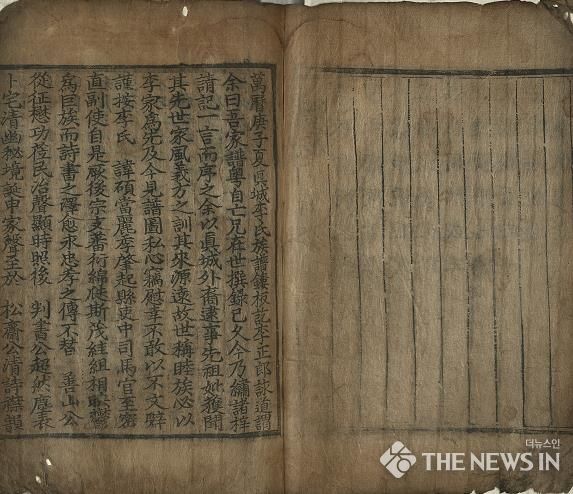 萬曆庚子夏眞城李氏族譜鏤板訖李正郎詠道謂
余曰吾家譜粤自亡兄在世撰錄已久今乃繡諸梓
請記一言而序之余以眞城外裔逮事先祖妣獲聞
其先世家風義方之訓其來源遠故世稱睦族必以
李家爲先及今見譜圖私心竊慰幸不敢以不文辭
謹按李氏 諱碩當麗季肇起縣吏中司馬官至密
直副使自是厥後宗支蕃衍綿 斯茂 組相聯
爲巨族而詩書之澤愈永忠孝之傳不替 善山公
從征懋功莅民治聲顯時照後 判書公超然塵表
卜宅清幽秘境誕 家聲至於 松齋公清詩襟韻
더뉴스인
THE NEWS IN